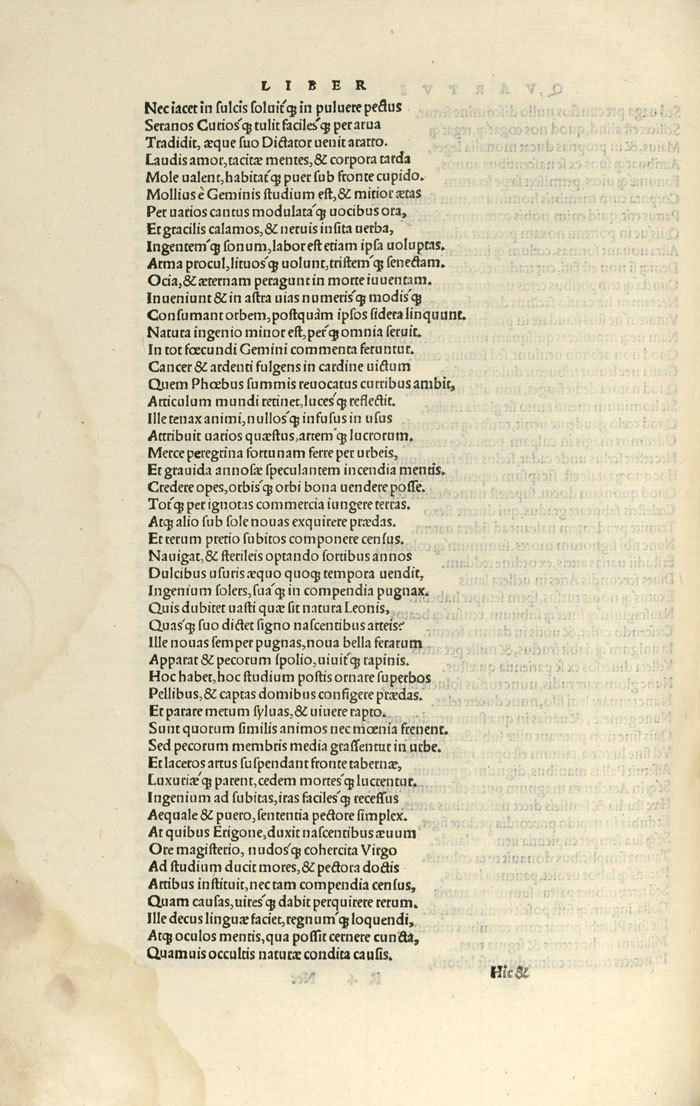 LIBER
Nec iacet in sulcis soluitq́; in puluere pectus
Seranos Curiosq́; tulit facilesq́; per arua
Tradidit, æque suo Dictator uenit aratro.
Laudis amor, tacitæ mentes, & corpora tarda
Mole ualent, habitatq́; puer sub fronte cupido.
Mollius è Geminis studium est, & mitior ætas
Per uarios cantus modulataq́; uocibus ora,
Et gracilis calamos, & neruis insita uerba,
Ingentemq́; sonum, labor est etiam ipsa uoluptas.
Arma procul, lituosq́; uolunt, tristemq́; senectam.
Ocia, & æternam peragunt in morte iuuentam.
Inueniunt & in astra uias numerisq́; modisq́;
Consumant orbem, postquàm ipsos sidera linquunt.
Natura ingenio minor est, perq́; omnia seruit.
In tot fœcundi Gemini commenta feruntur.
Cancer & ardenti fulgens in cardine uictum
Quem Phœbus summis reuocatus curribus ambit,
Articulum mundi retinet, lucesq́; reflectit.
Ille tenax animi, nullosq́; infusus in usus
Attribuit uarios quæstus, artemq́; lucrorum.
Merce peregrina fortunam ferre per urbeis,
Et grauida annosæ speculantem incendia mentis.
Credere opes, orbisq́; orbi bona uendere posse.
Totq́; per ignotas commercia iungere terras.
Atq; alio sub sole nouas exquirere prædas.
Et rerum pretio subitos componere census.
Nauigat, & sterileis optando sortibus annos
Dulcibus usuris æquo quoq; tempora uendit,
Ingenium solers, suaq́; in compendia pugnax.
Quis dubitet uasti quæ sit natura Leonis,
Quasq́; suo dictet signo nascentibus arteis?
Ille nouas semper pugnas, noua bella ferarum
Apparat & pecorum spolio, uiuitq́; rapinis.
Hoc habet, hoc studium postis ornare superbos
Pellibus, & captas domibus configere prædas.
Et parare metum syluas, & uiuere rapto.
Sunt quorum similis animos nec mœnia frenent.
Sed pecorum membris media grassentur in urbe.
Et laceros artus suspendant fronte tabernæ,
Luxuriæq́; parent, cedem mortesq́; lucrentur.
Ingenium ad subitas, iras facilesq́; recessus
Aequale & puero, sententia pectore simplex.
At quibus Erigone, duxit nascentibus æuum
Ore magisterio, nudosq́; cohercita Virgo
Ad studium ducit mores, & pectora doctis
Artibus instituit, nec tam compendia census,
Quam causas, uiresq́; dabit perquirere rerum.
Ille decus linguæ faciet, regnumq́; loquendi,
Atq; oculos mentis, qua possit cernere cuncta,
Quamuis occultis naturæ condita causis.
Hic &